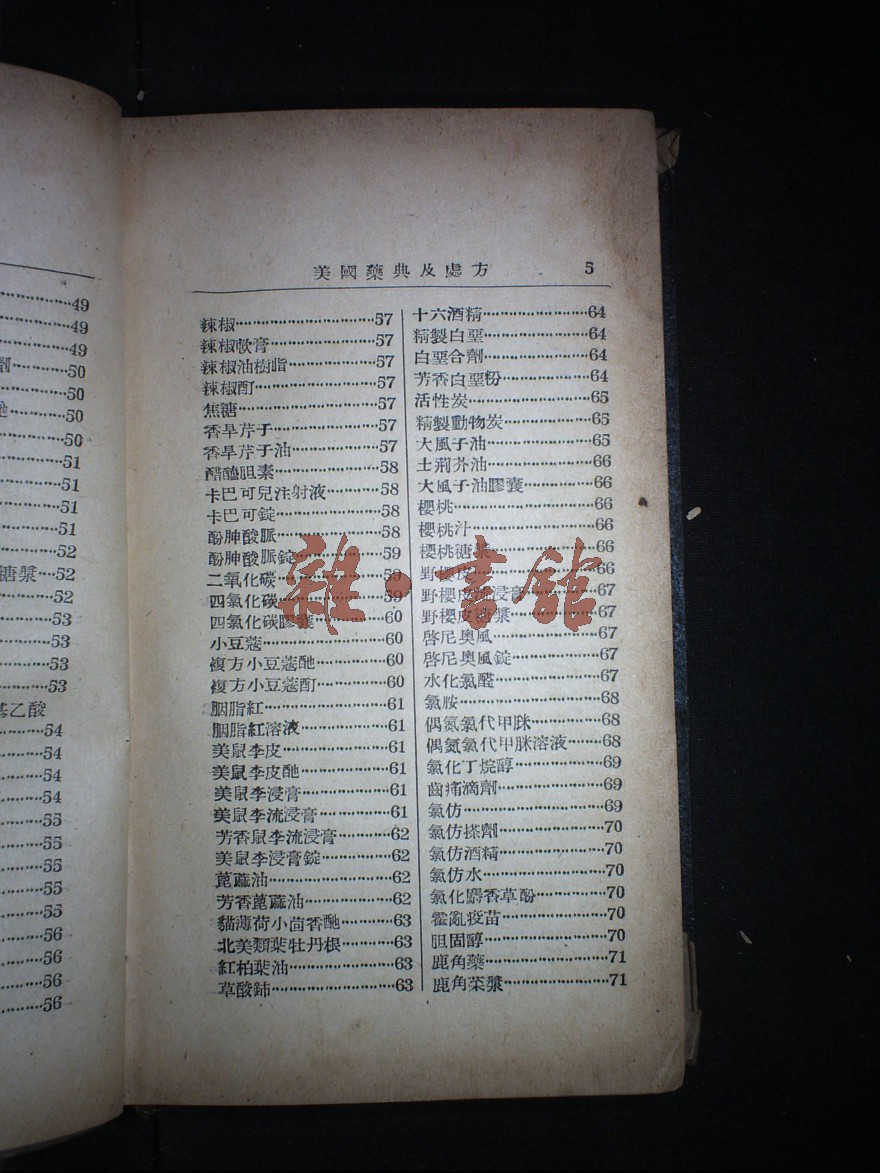 49
49
49
劑 50
50
50
50
51
51
51
51
52
糖漿 52
52
53
53
53
53
基乙酸
54
54
54
54
55
55
55
55
55
56
56
56
56
美國藥典及處方 5
辣椒 57
辣椒軟膏 57
辣椒油樹脂 57
辣椒酊 57
焦糖 57
香旱芹子 57
香旱芹子油 57
醋醯胆素 58
卡巴可兒注射液 58
卡巴可錠 58
酚胂酸脲 58
酚胂酸脲錠 59
二氧化碳 59
四氯化碳 59
四氯化碳膠囊 60
小豆蔻 60
複方小豆蔻酏 60
複方小豆蔻酊 60
胭脂紅 61
胭脂紅溶液 61
美鼠李皮 61
美鼠李皮酏 61
美鼠李浸膏 61
美鼠李流浸膏 61
芳香鼠李流浸膏 62
美鼠李浸膏錠 62
蓖蔴油 62
芳香蓖蔴油 62
貓薄荷小茴香酏 63
北美類葉牡丹根 63
紅柏葉油 63
草酸鈰 63
十六酒精 64
精製白堊 64
白堊合劑 64
芳香白堊粉 64
活性炭 65
精製動物炭 65
大風子油 65
土荊芥油 66
大風子油膠囊 66
櫻桃 66
櫻桃汁 66
櫻桃糖漿 66
野櫻皮 66
野櫻皮流浸膏 67
野櫻皮糖漿 67
啓尼奧風 67
啓尼奧風錠 67
水化氯醛 67
氯胺 68
偶氮氯代甲脒 68
偶氮氯代甲脒溶液 68
氯化丁烷醇 69
齒痛滴劑 69
氯仿 69
氯仿搽劑 70
氯仿酒精 70
氯仿水 70
氯化麝香草酚 70
霍亂疫苗 70
胆固醇 70
鹿角藥 71
鹿角菜漿 71
雜·書館